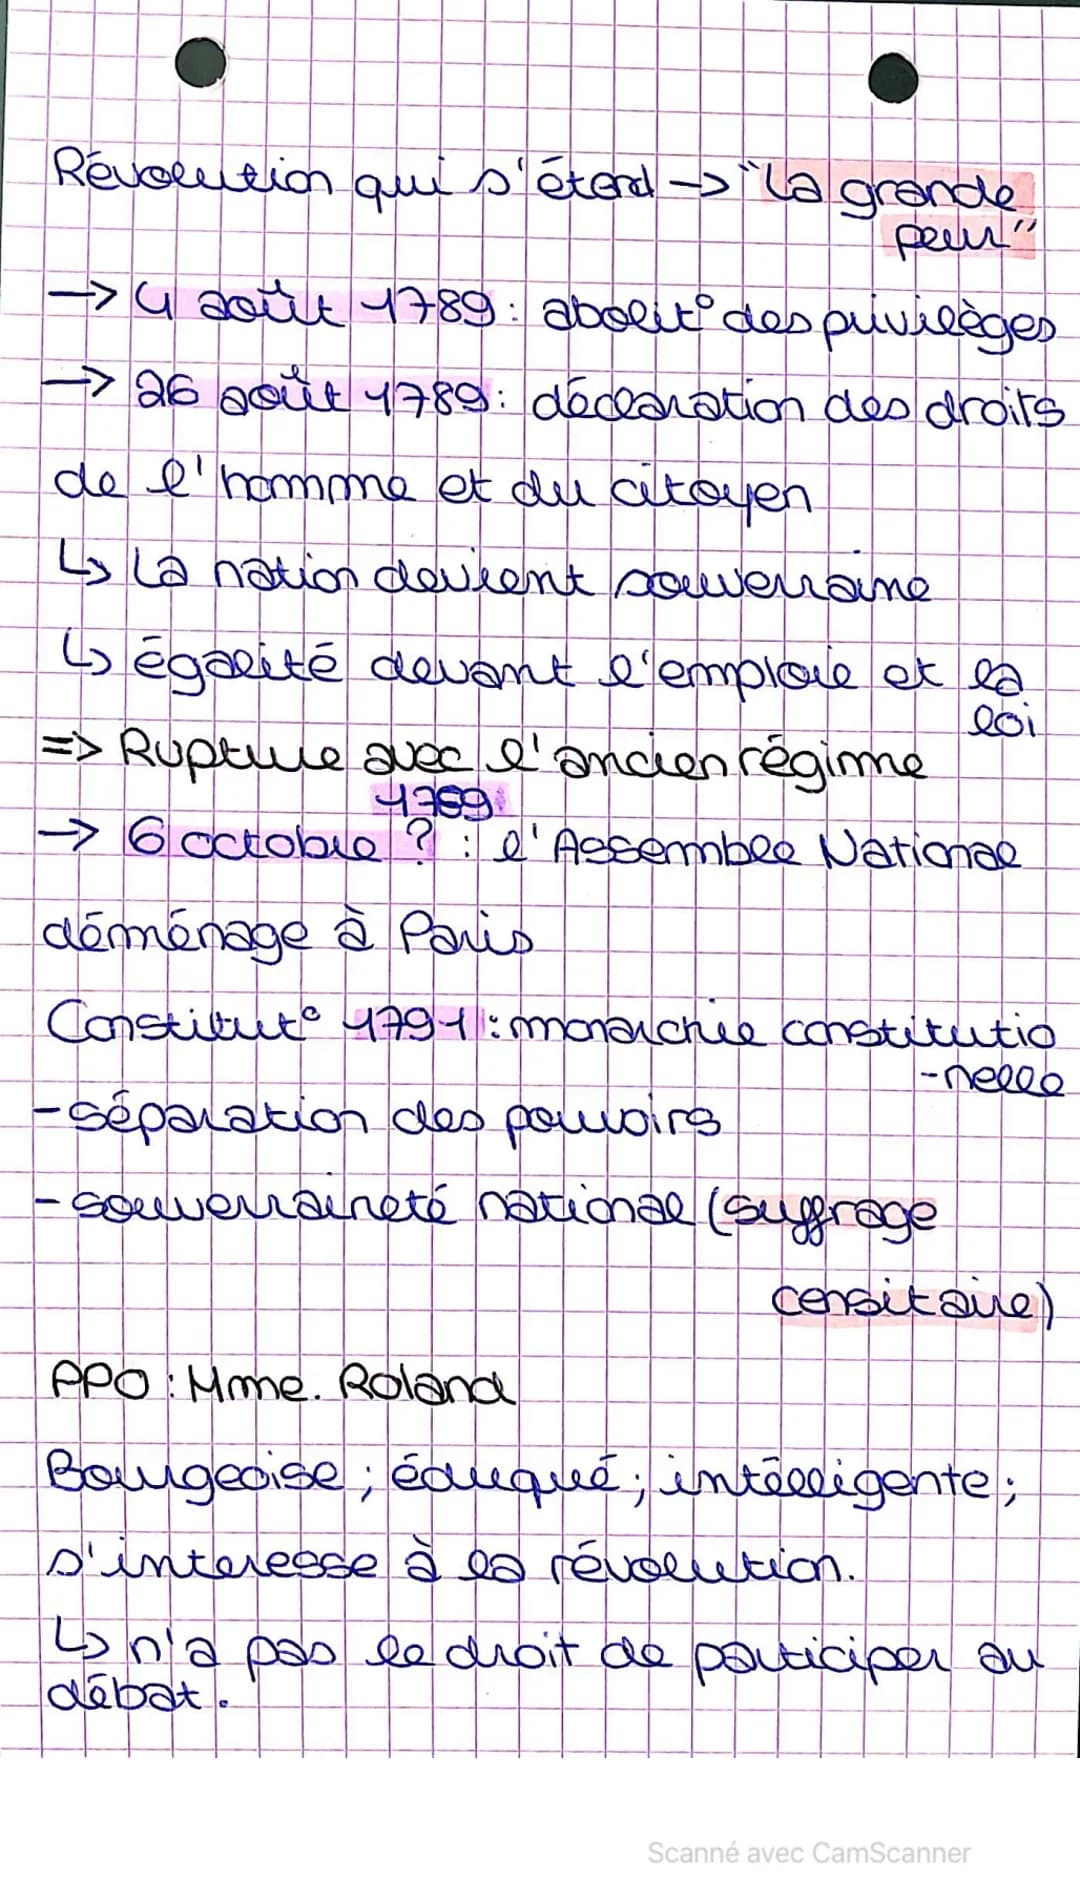 Révolution qui s'étend -> "La grande
peur"
-> 4 août 1789 : abolit° des privilèges
-> 26 août 1789 : déclaration des droits
de l'homme et du citoyen
↳ La nation devient souverraine
↳ égalité devant l'emploie et la
loi
=> Rupture avec l'ancien régime
1789
-> 6 octobre ? : l'Assemblée National
déménage à Paris
Constitut° 1791 : monarchie constitutio
-nelle
- séparation des pouvoirs
- souverraineté national (suffrage
censitaire)
PPO : Mme. Roland
Bourgeoise ; éduqué ; intélligente ;
s'interesse à la révolution.
↳ n'a pas le droit de participer au
débat.
Scanné avec CamScanner